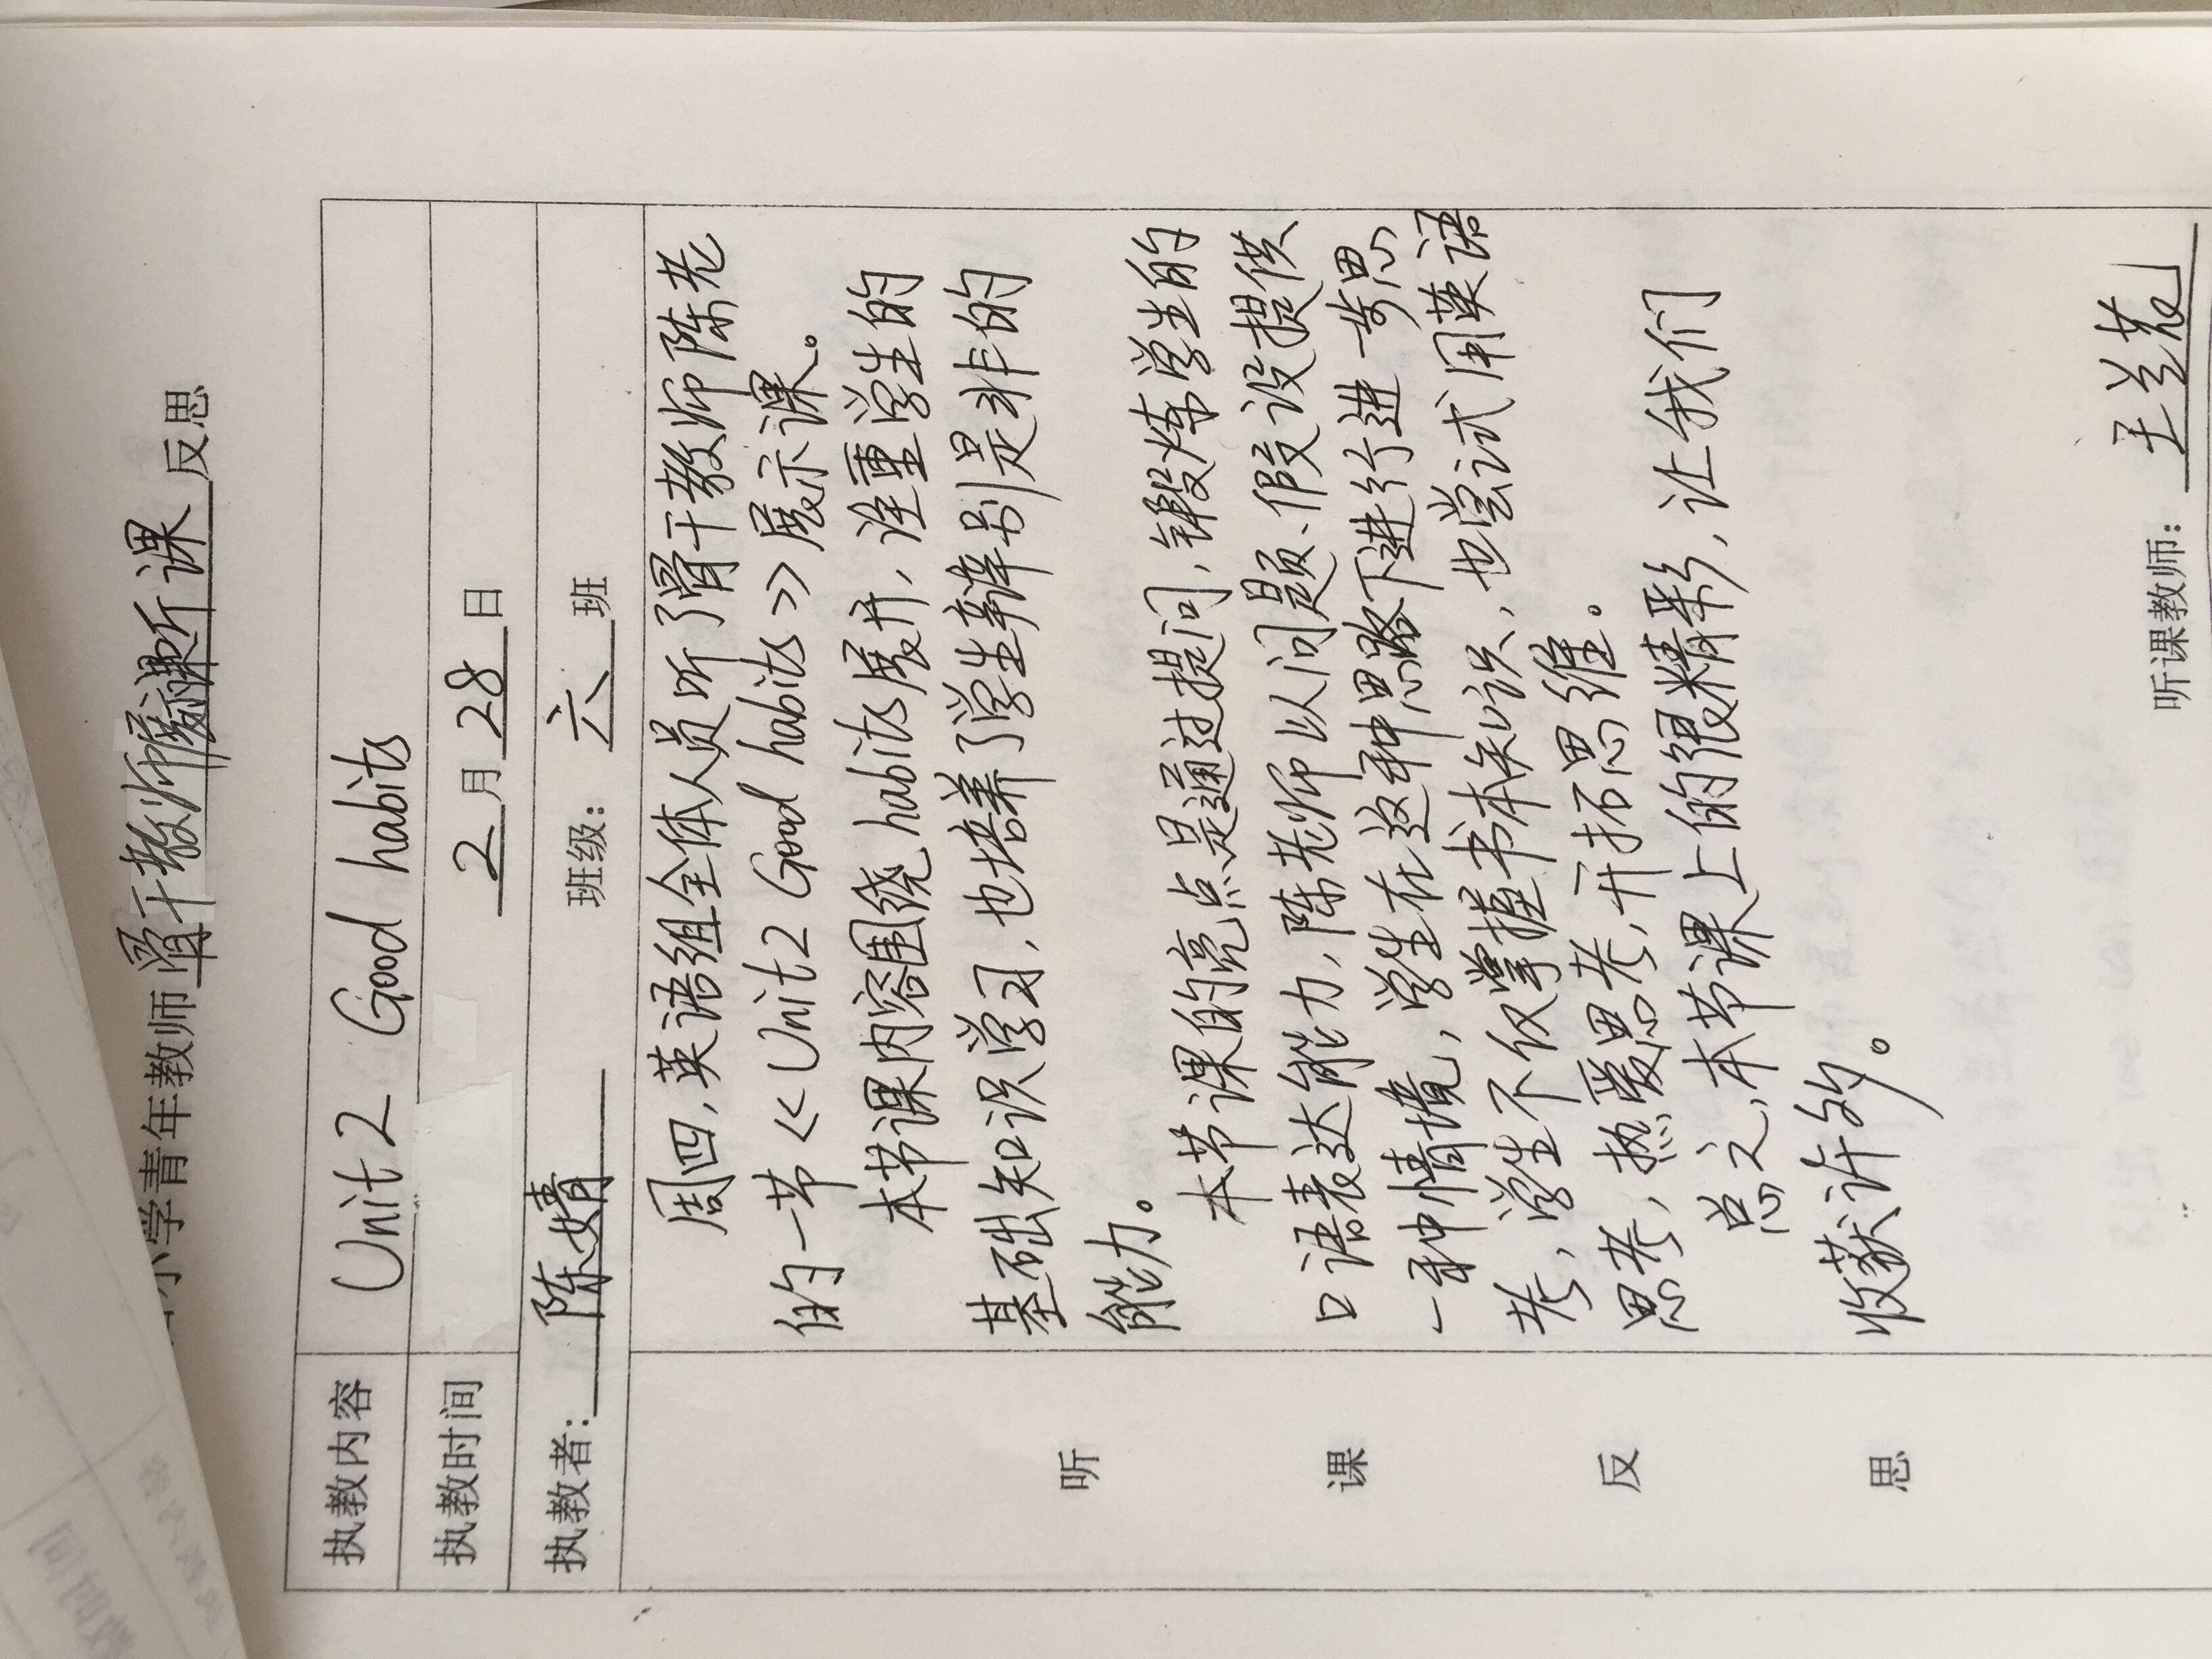 小学青年教师骨干教师展课听课反思
执教内容 Unit 2 Good habits
执教时间 2月28日
执教者：陈婧 班级：六班
周四，英语组全体人员听了骨干教师陈老
的一节《Unit2 Good habits》展示课。
本节课内容围绕habits展开，注重学生的
基础知识学习，也培养了学生辩别是非的
能力。
本节课的亮点是通过提问，锻炼学生的
口语表达能力，陈老师以问题、假设提供
一种情境，学生在这种思路下进行进一步思
考，学生不仅掌握书本知识，也尝试用英语
思考，热爱思考，开拓思维。
总之，本节课上的很精彩，让我们
收获许多。
听课反思
听课教师：王兰花